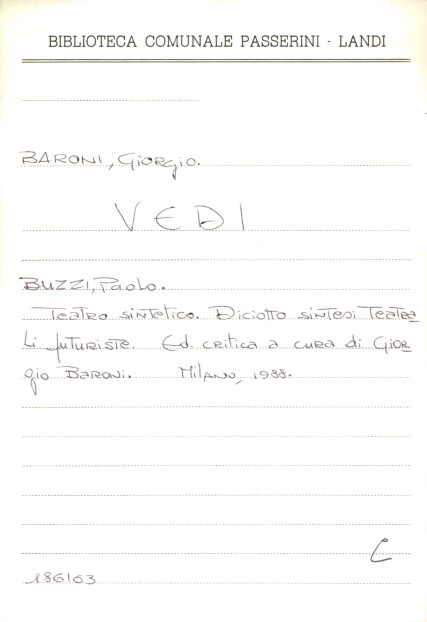 BIBLIOTECA COMUNALE PASSERINI - LANDI
BARONI, Giorgio.
VEDI
BUZZI, Paolo.
Teatro sintetico. Diciotto sintesi teatra
li futuriste. Ed. critica a cura di Gior
gio Baroni. Milano, 1988.
C
186163